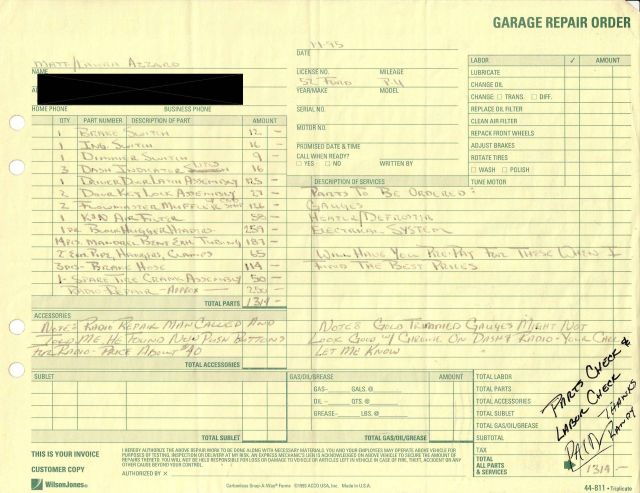 GARAGE REPAIR ORDER
11-95
DATE
Matt/Laura Azzaro
NAME
LICENSE NO. MILEAGE
52 Ford P.U
YEAR/MAKE MODEL
HOME PHONE BUSINESS PHONE
SERIAL NO.
MOTOR NO.
PROMISED DATE & TIME
CALL WHEN READY?
YES NO WRITTEN BY
LABOR ✓ AMOUNT
LUBRICATE
CHANGE OIL
CHANGE TRANS. DIFF.
REPLACE OIL FILTER
CLEAN AIR FILTER
REPACK FRONT WHEELS
ADJUST BRAKES
ROTATE TIRES
WASH POLISH
TUNE MOTOR
QTY PART NUMBER DESCRIPTION OF PART AMOUNT
1 Brake Switch 12 -
1 Ing. Switch 16 -
1 Dimmer Switch 9 -
3 Dash Indicator 16 -
1 Driver Door Latch Assembly 125 -
2 Door Key Lock Assembly
2 Flowmaster Muffler 126 -
1 K&N Air Filter 58 -
1 pr. Block Hugger Headers 259 -
14 pcs. Mandrel Bent Exh Tubing 187 -
2 Pipe, Hangers, Clamps 65
3 pcs - Brake Hose 114 -
1 - Spare Tire Crane Assembly 50 -
Radio Repair - Approx 250 -
TOTAL PARTS 1314 -
DESCRIPTION OF SERVICES
Parts To Be Ordered:
Gauges
Heater/Defroster
Electrical System
Will Have You Pre-Pay For These When I
Find The Best Prices
ACCESSORIES
Note: Radio Repair Man Called And
Told Me He Found New Push Buttons
For Radio - Price About $40
TOTAL ACCESSORIES
Note: Gold Trimmed Gauges Might Not
Look Good w/ Chrome On Dash & Radio - Your
Let Me Know
SUBLET AMOUNT
TOTAL SUBLET
GAS/OIL/GREASE AMOUNT
GAS- GALS. @
OIL - QTS. @
GREASE- LBS. @
TOTAL GAS/OIL/GREASE
TOTAL LABOR
TOTAL PARTS
TOTAL ACCESSORIES
TOTAL SUBLET
TOTAL GAS/OIL/GREASE
SUBTOTAL
TAX
TOTAL ALL PARTS & SERVICES 1314 -
Parts Check &
Labor Check
Paid Thanks
Randy
THIS IS YOUR INVOICE
CUSTOMER COPY
I HEREBY AUTHORIZE THE ABOVE REPAIR WORK TO BE DONE ALONG WITH NECESSARY MATERIALS. YOU AND YOUR EMPLOYEES MAY OPERATE ABOVE VEHICLE FOR
PURPOSES OF TESTING, INSPECTION OR DELIVERY AT MY RISK. AN EXPRESS MECHANIC'S LIEN IS ACKNOWLEDGED ON ABOVE VEHICLE TO SECURE THE AMOUNT
OF REPAIRS THERETO. YOU WILL NOT BE HELD RESPONSIBLE FOR LOSS OR DAMAGE TO VEHICLE OR ARTICLES LEFT IN VEHICLE IN CASE OF FIRE, THEFT, ACCIDENT OR ANY
OTHER CAUSE BEYOND YOUR CONTROL.
AUTHORIZED BY X
WilsonJones
Carbonless Snap-A-Way® Forms ©1995 ACCO USA, Inc. Made in U.S.A.
44-811 • Triplicate